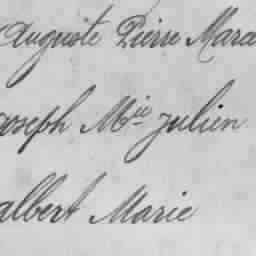 Auguste Pierre Marc
Joseph Mie Julien
albert Marie